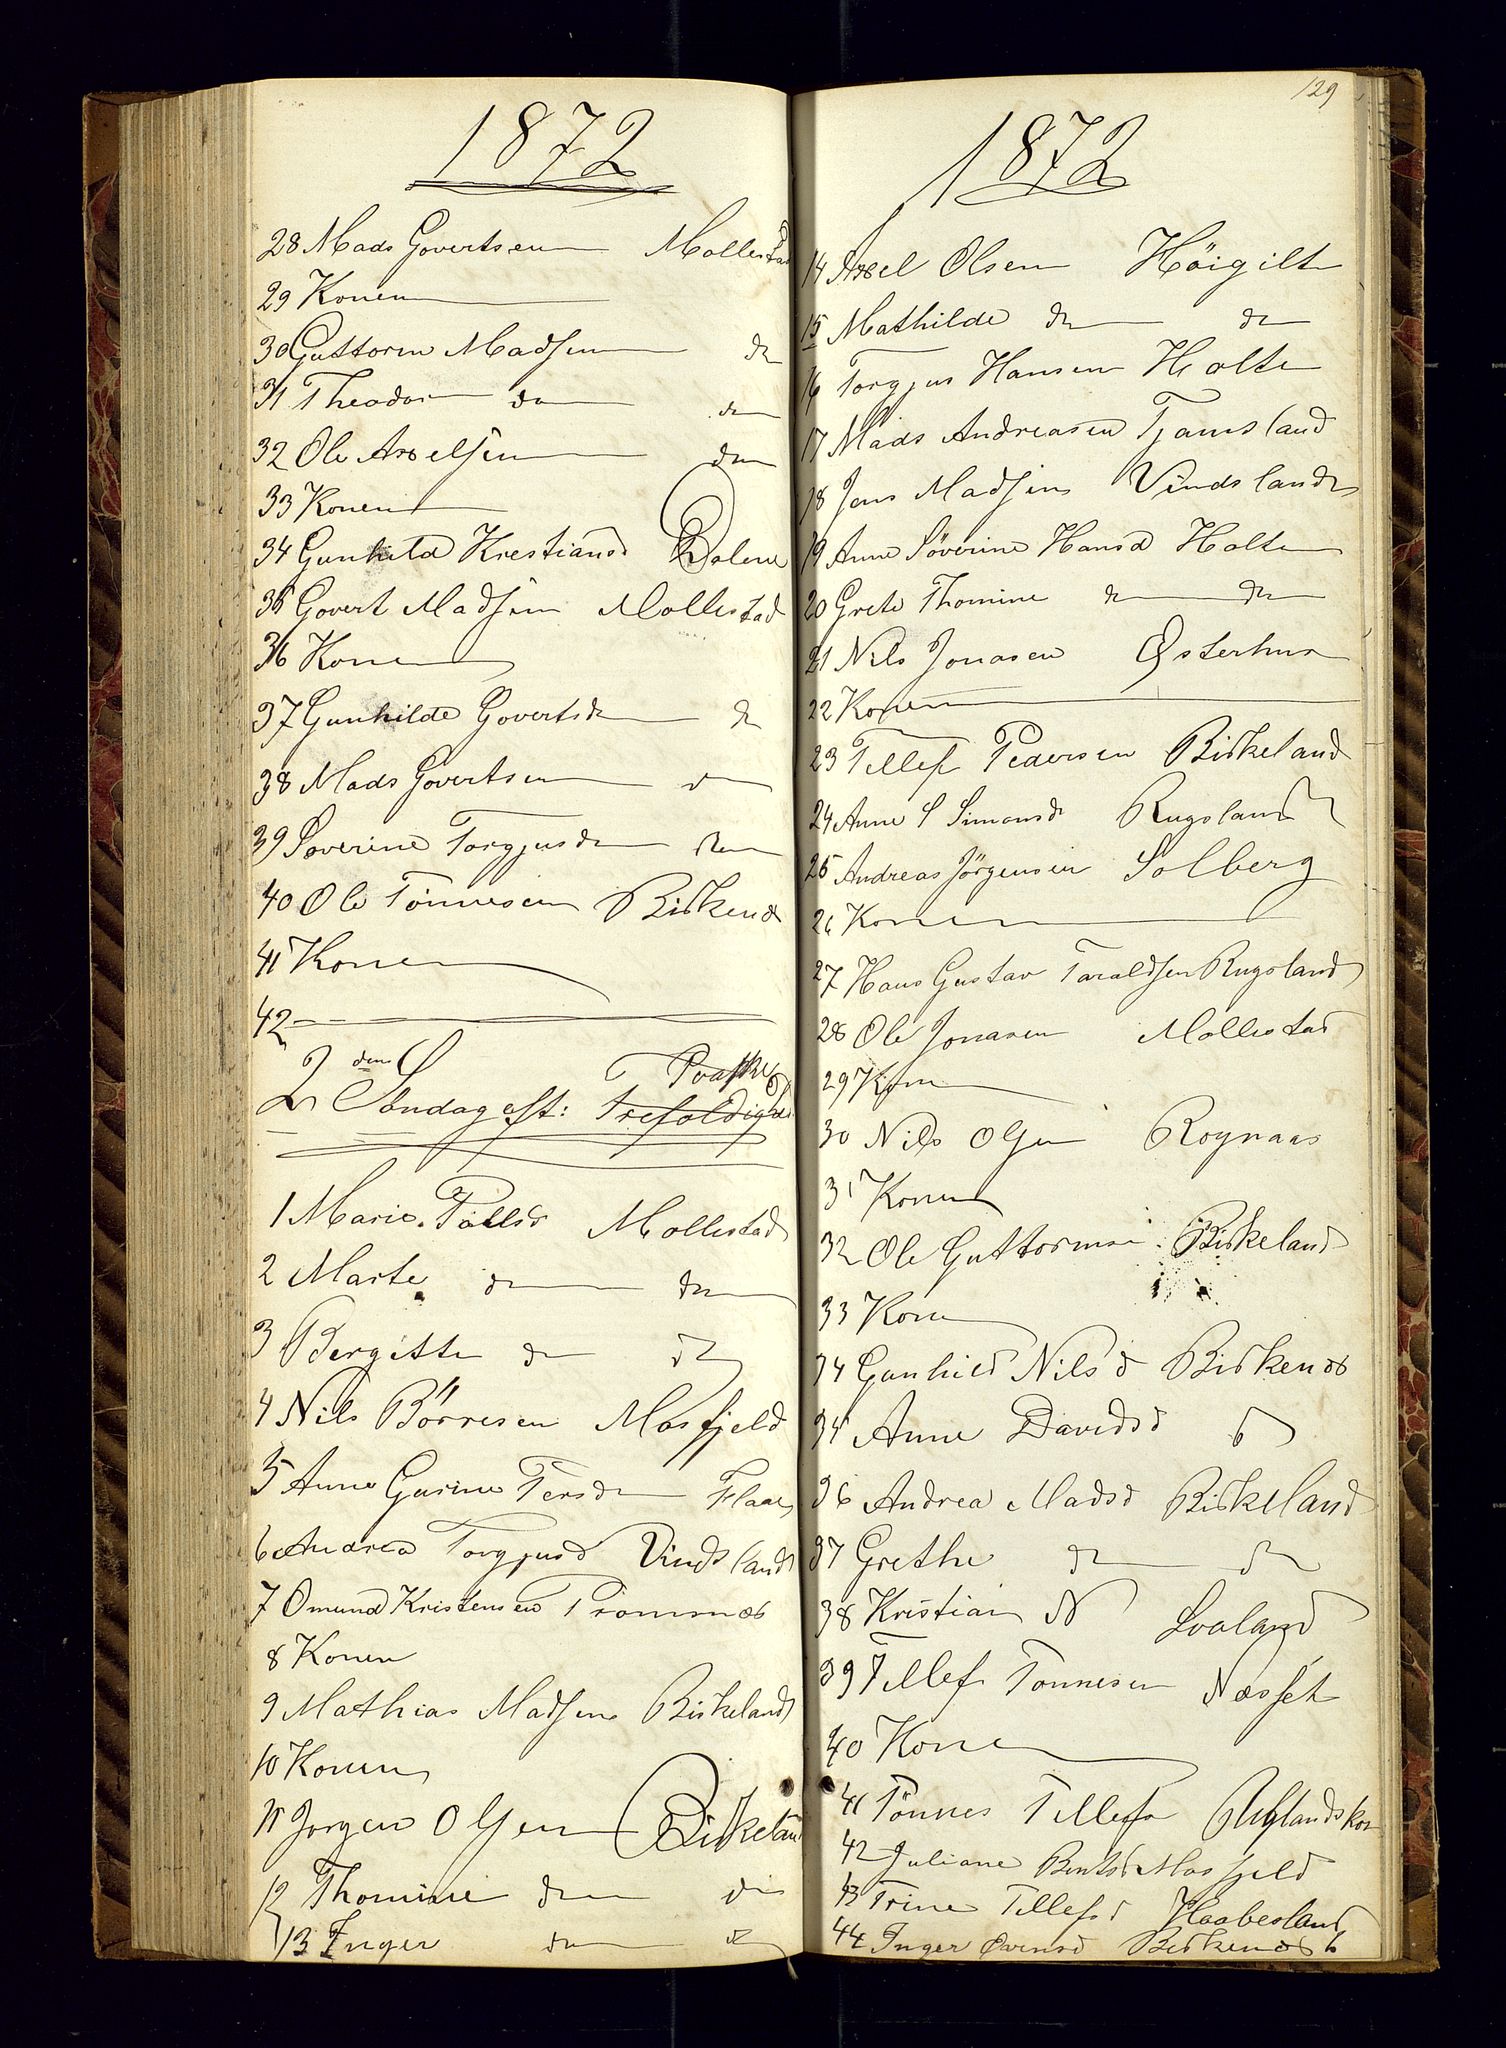 1872
28 Mads Govertsen Mollestad
29 Konen
30 Guttorm Madsen do
31 Theodor do do
32 Ole Axelsen do
33 Konen
34 Gunhild Krestiansd Dolene
35 Govert Madsen Mollestad
36 Konen
37 Gunhilde Govertsd do
38 Mads Govertsen do
39 Severine Torgjusd do
40 Ole Tönnesen Birkenæs
41 Konen
42
2den Söndag eft: Trefoldigh Paaske
1 Marie Pallsd Mollestad
2 Marte do do
3 Bergitte do do
4 Nils Börresen Mosfjeld
5 Anne Gurine Tersd Flaa
6 Andrea Torgjusd Vindsland
7 Omund Kristensen Tromnæs
8 Konen
9 Mathias Madsen Birkeland
10 Konen
11 Jorgen Olsen Birkeland
12 Thomine do do
13 Inger do do
129
1872
14 Axel Olsen Höigilt
15 Mathilde do do
16 Torgjus Hansen Holte
17 Mads Andreasen Tjamsland
18 Jens Madsen Vindsland
19 Anne Söverine Hansd Holte
20 Grete Thomine do do
21 Nils Jonasen Østerhus
22 Konen
23 Tellef Pedersen Birkeland
24 Anne S Simonsd Rugsland
25 Andreas Jörgensen Solberg
26 Konen
27 Hans Gustav Taraldsen Rugsland
28 Ole Jonasen Mollestad
29 Kone
30 Nils Olsen Rognaas
31 Konen
32 Ole Guttorms Birkeland
33 Kone
34 Gunhild Nilsd Birkenæs
35 Anne Davidsd
36 Andrea Madsd Birkeland
37 Grethe do do
38 Kristian N Svaland
39 Tellef Tonnesen Næsset
40 Kone
41 Tönnes Tellefs Uglandskon
42 Juliane Bentsd Mosfjeld
43 Trine Tellefsd Haabesland
44 Inger Evensd Birkenæs